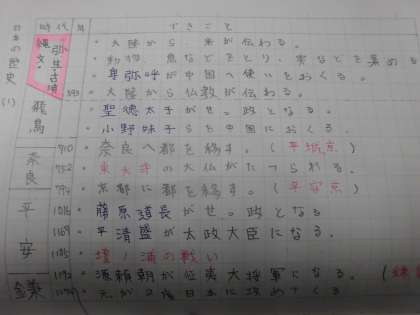 日本の歴史(1)
時代 年 できごと
縄文・弥生・古墳
・大陸から米が伝わる。
・動物、魚などをとり、実などを集める
・卑弥呼が中国へ使いをおくる。
593 ・大陸から仏教が伝わる。
飛鳥
・聖徳太子がせっ政となる。
・小野妹子らを中国におくる。
奈良
710 ・奈良へ都を移す。(平城京)
752 ・東大寺の大仏がたつられる。
794 ・京都に都を移す。(平安京)
平安
1016 ・藤原道長がせっ政となる
1167 ・平清盛が太政大臣になる。
1185 ・壇ノ浦の戦い
鎌
1192 ・源頼朝が征夷大将軍になる。(鎌
・元が2度日本に攻めてくる